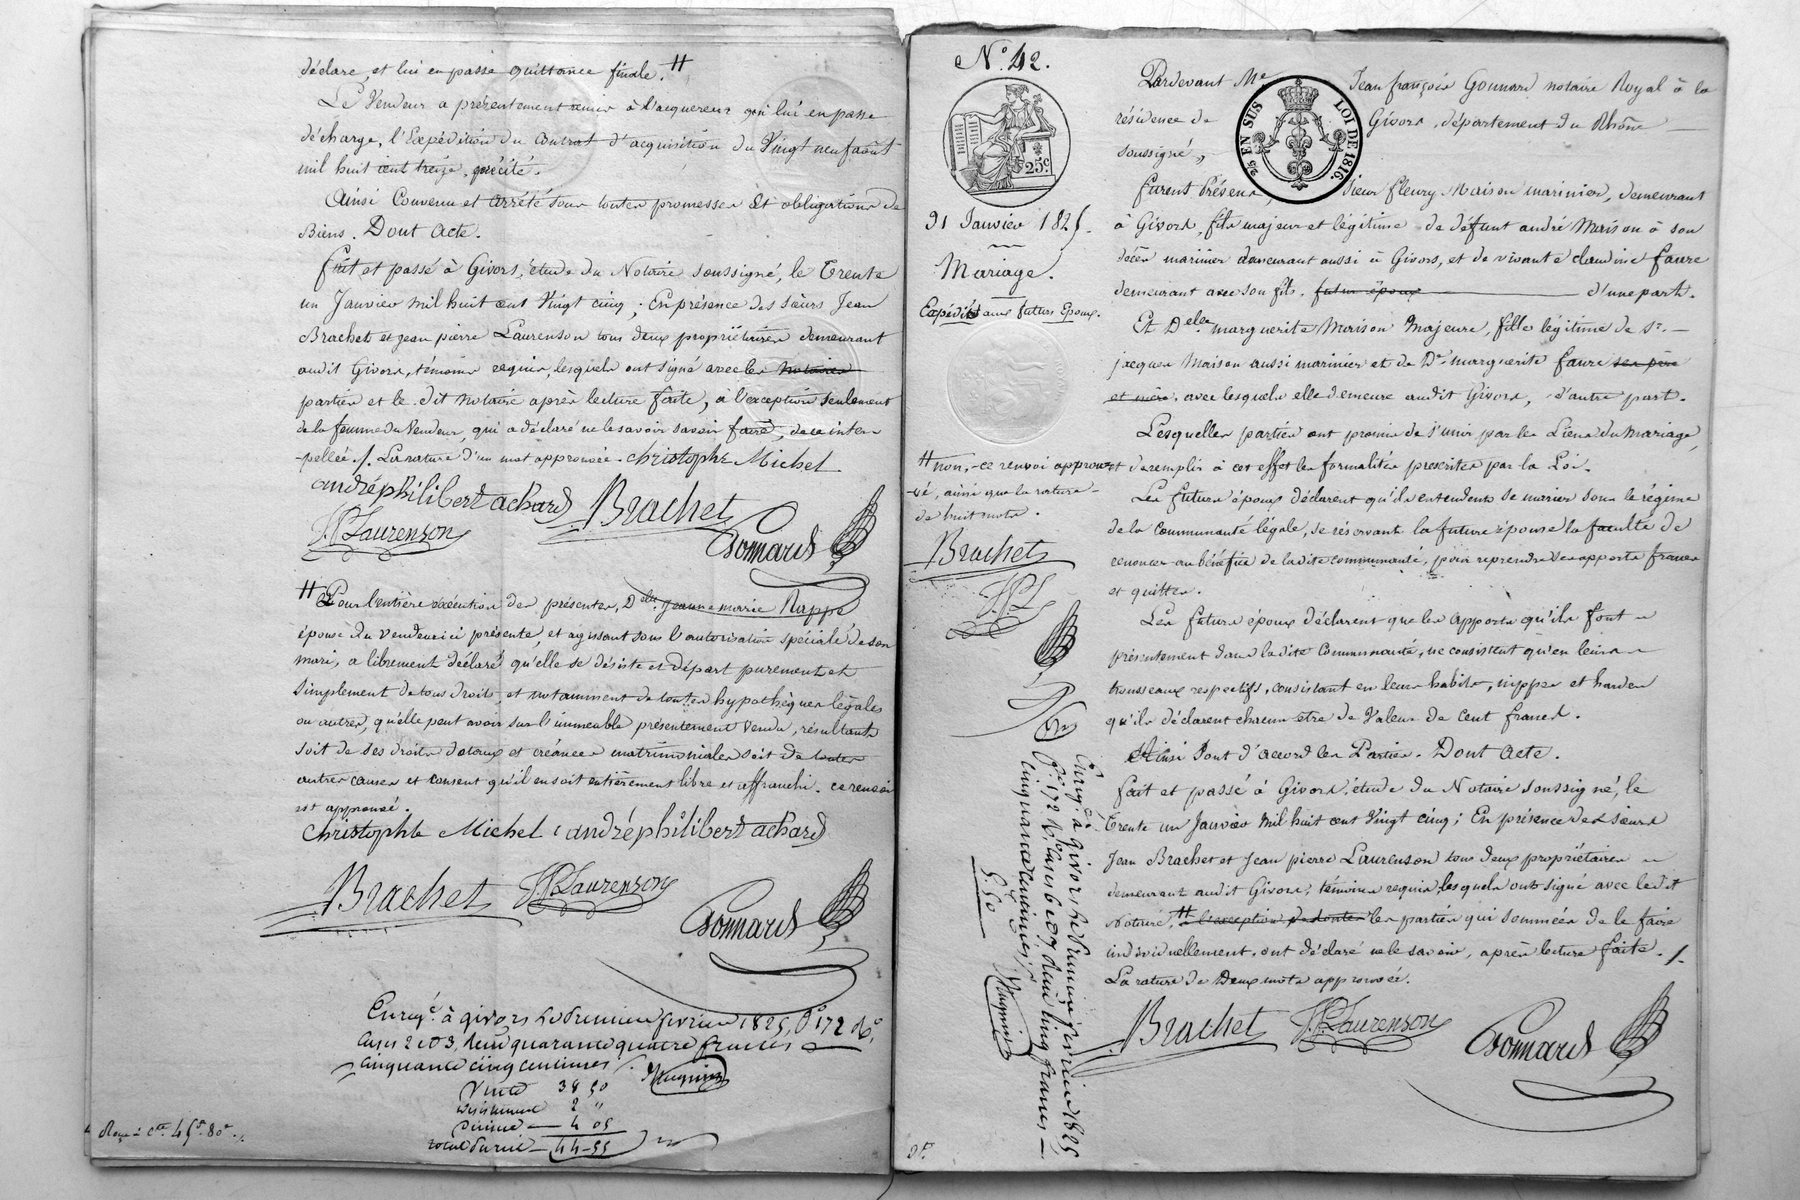 déclare, et lui en passe quittance finale. #
Le Vendeur a présentement remis à l'acquereur qui lui en passe
décharge, l'Expédition du Contrat d'acquisition du Vingt neuf août
mil huit cent treize, précité.
Ainsi Convenu et arrêté sous toutes promesses et obligations de
Biens. Dont Acte.
Fait et passé à Givors, étude du Notaire soussigné, le Trente
un Janvier mil huit cent Vingt cinq ; En présence des sieurs Jean
Brachet et jean pierre Laurenson tous deux propriétaires demeurant
audit Givors, témoins requis, lesquels ont signé avec les notaires
parties et le dit notaire après lecture faite, à l'exception seulement
de la femme du Vendeur, qui a déclaré ne le savoir savoir faire, de ce inter
-pellée ./. La rature d'un mot approuvée. Christophe Michel
andréphilibert achard Brachet
JPLaurenson Gonnard
# Pour l'entière exécution des présentes, Delle Jeanne marie Rappe
épouse du vendeur ici présente, et agissant sous l'autorisation spéciale de son
mari, a librement déclaré qu'elle se désiste et départ purement et
simplement de tous droits, et notamment de toutes hypothèques légales
ou autres, qu'elle peut avoir sur l'immeuble présentement Vendu, résultants
soit de ses droits dotaux et créances matrimoniales soit de toutes
autres causes et consent qu'il en soit entièrement libre et affranchi. ce renvoi
est approuvé.
Christophe Michel andréphilibert achard
Brachet JPLaurenson
Gonnard
Enregé à givors le Premier fevrier 1825, fo 172 Ro
cases 2 et 3, Reçu quarante quatre francs
cinquante cinq centimes
Vente 38 50
2 "
Décime 4 05
44-55
45f 80c
No 42.
25c
31 Janvier 1825.
Mariage.
Expédié aux futurs Epoux.
# non, ce renvoi approu-
-vé, ainsi que la rature
de huit mots.
Brachet
JPL
Enregé à givors le Premier fevrier 1825
fo 172 Ro cases 6 et 7 Reçu cinq francs
cinquante centimes
5,50
Pardevant Me Jean françois Gonnard notaire Royal à la
25 EN SUS LOI DE 1816.
résidence de Givors, département du Rhône
soussigné,
furent Présens, sieur fleury Maison marinier, demeurant
à Givors, fils majeur et légitime de défunt andré Maison à son
décès marinier demeurant aussi à Givors, et de vivante claudine faure
demeurant avec son fils. futur époux d'une part.
Et Delle marguerite Maison Majeure, fille légitime de Sr
jacques Maison aussi marinier et de De marguerite faure ses père
et mère, avec lesquels elle demeure audit Givors, d'autre part.
Lesquelles parties ont promis de s'unir par les Liens du Mariage,
et de remplir à cet effet les formalités prescrites par la Loi.
Les futurs époux déclarent qu'ils entendent se marier sous le régime
de la Communauté légale, se réservant la future épouse la faculté de
renoncer au bénéfice de ladite communauté, pour reprendre ses apports francs
et quittes.
Les futurs époux déclarent que les apports qu'ils font
présentement dans ladite Communauté, ne consistent qu'en leurs
trousseaux respectifs, consistant en leurs habits, nippes et hardes
qu'ils déclarent chacun etre de Valeur de cent francs.
Ainsi sont d'acord les Parties. Dont Acte.
fait et passé à Givors, étude du Notaire soussigné, le
Trente un Janvier Mil huit cent Vingt cinq ; En présence des sieurs
Jean Brachet et Jean pierre Laurenson tous deux propriétaires
demeurant audit Givors, témoins requis, lesquels ont signé avec ledit
Notaire, # à l'exception de toutes les parties qui sommées de le faire
individuellement, ont déclaré ne le savoir, après lecture faite. ./.
La rature de Deux mots approuvée.
Brachet JPLaurenson Gonnard